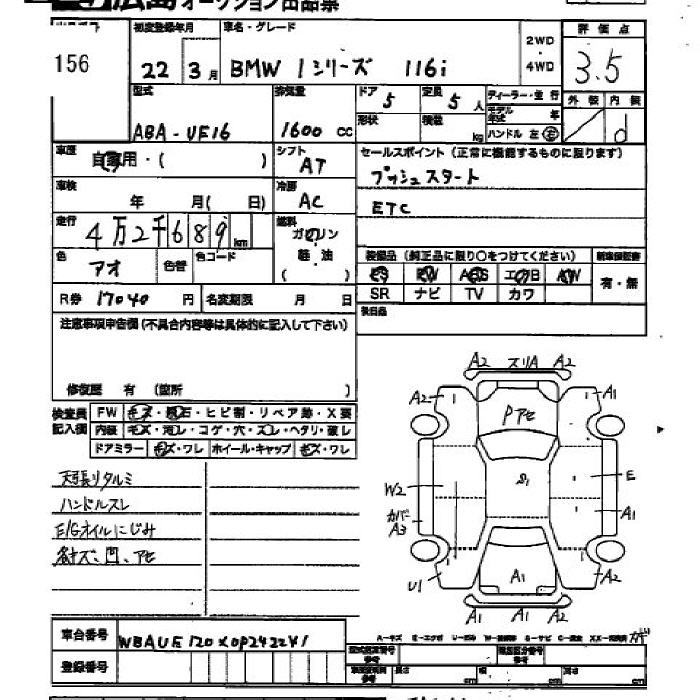 広島オークション出品票
156
初度登録年月 22 年 3 月
車名・グレード BMW 1シリーズ 116i
2WD ・ 4WD
評価点 3.5
外装 内装 d
型式 ABA-UE16
排気量 1600 cc
ドア 5
定員 5 人
形状
積載 kg
ディーラー・並行
モデル年式 年
ハンドル 左 右
車歴 自家用・( )
シフト AT
セールスポイント(正常に機能するものに限ります)
プッシュスタート
ETC
車検 年 月( 日)
冷房 AC
走行 4万2千689 km
燃料 ガソリン 軽・油 ( )
色 アオ
色替
色コード
装備品(純正品に限り○をつけてください)
新車保証書 有・無
PS PW ABS エアB AW
SR ナビ TV カワ
R券 17040 円
名変期限 月 日
後日品
注意事項申告欄(不具合内容等は具体的に記入して下さい)
修復歴 有 (箇所 )
検査員記入欄
FW キズ・飛石・ヒビ割・リペア跡・X要
内装 キズ・汚レ・コゲ・穴・スレ・ヘタリ・破レ
ドアミラー キズ・ワレ ホイール・キャップ キズ・ワレ
天張りタルミ
ハンドルスレ
E/Gオイルにじみ
各キズ、凹、アセ
A2 スリA A2
A2 A1
Pアセ
W2 S1 E
カバー A3 A1
U1 A1 A2
A1 A1 A1
車台番号 WBAUE120X0P242241
登録番号
A-キズ E-エクボ
型式指定番号 参考
類別区分番号 参考
長さ cm 幅 cm 高さ cm